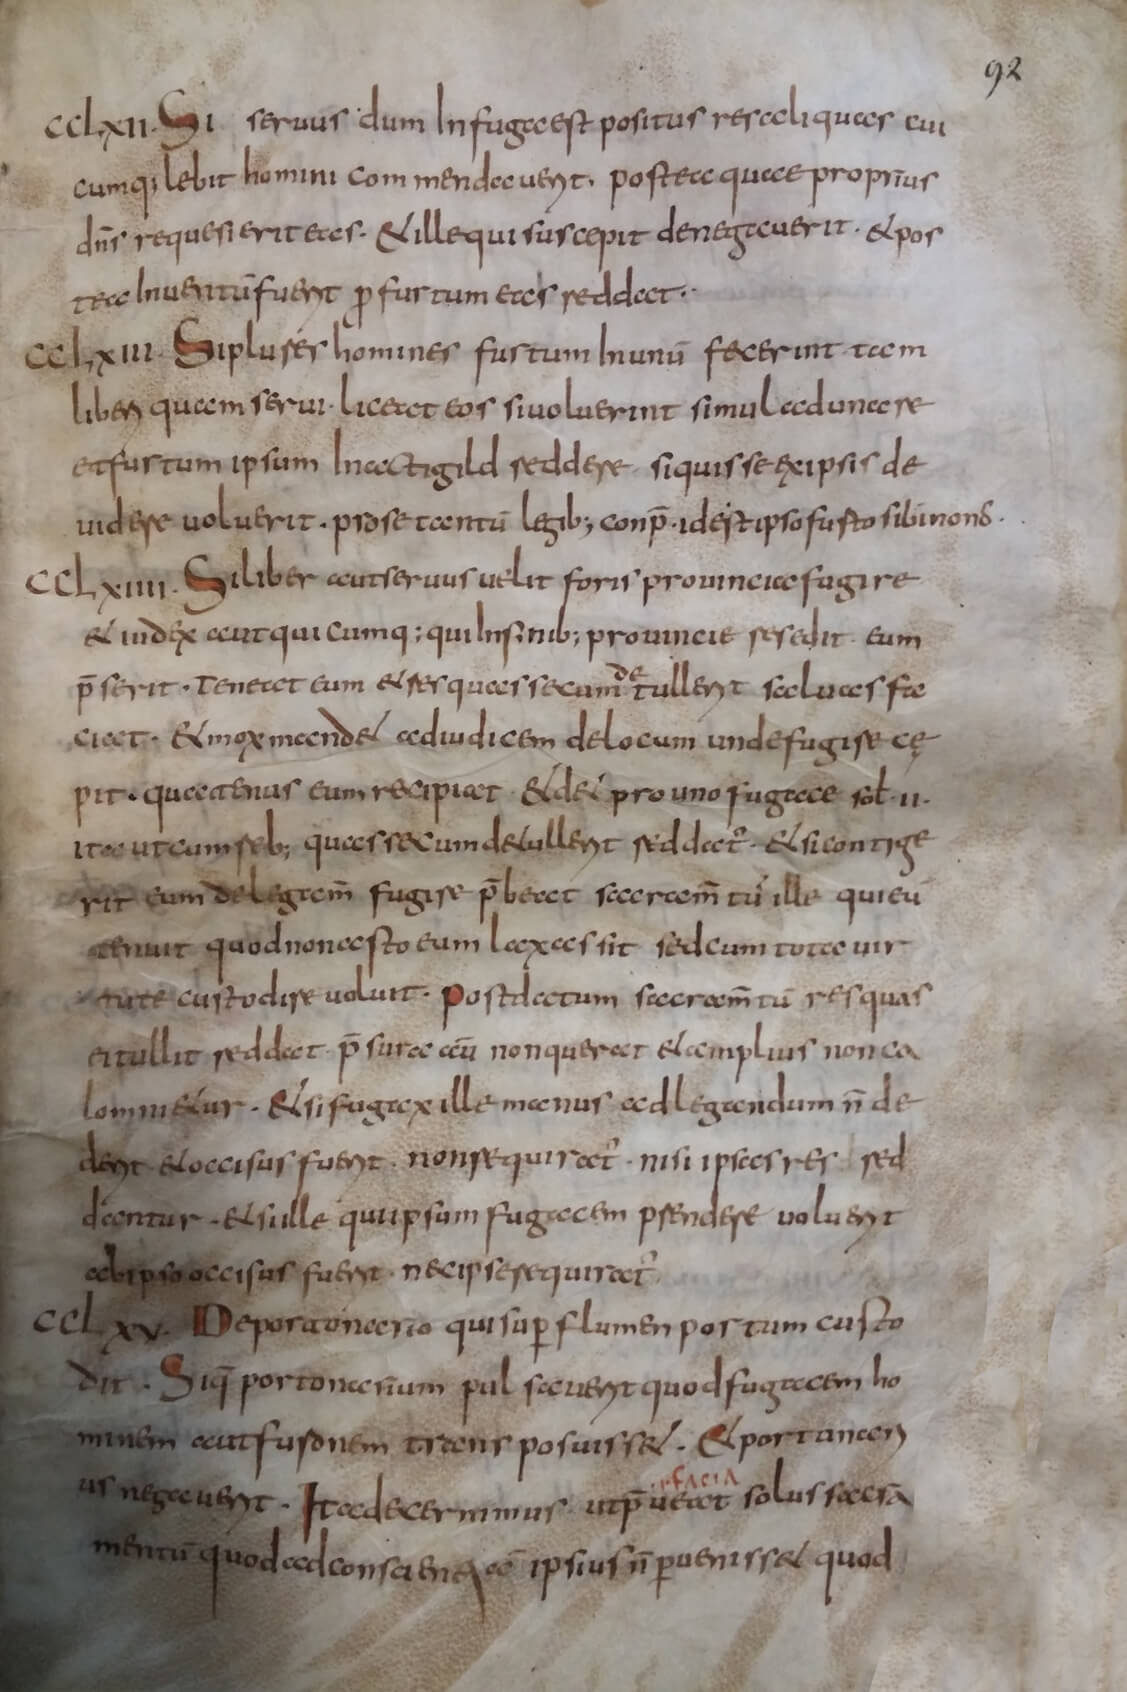 92
CCLXII. Si servus dum In fuga est positus res aliquas cui
cumq; lebit homini commendaverit. postea quae proprius
dn̄s requesierit eas. & ille qui suscepit denegaverit. & pos
tea Inventū fuerit ꝓ furtum eas reddat.
CCLXIII. Si plures homines furtum In unū fecerint tam
liberi quam servi. liceat eos si voluerint simul adunare
et furtum ipsum In actigild reddere si quis se ex ipsis de
videre voluerit. pro se tantū legib; conp̄. id est ipso furto sibi nonꝰ.
CCLXIIII. Si liber aut servus velit foris provincia fugire
& iudex aut quicumq; qui In finib; provincie resedit eum
p̄serit. teneat eum & res quas secum detullerit salvas fa
ciat. & mox mand& ad iudicem de locum unde fugire cę
pit. quatenus eum recipiat & d& pro uno fugace sol. II.
ita ut cum reb; quas secum d&ullerit reddat͛. & si contige
rit eum de legam̄ fugire p̄beat sacram̄tū ille qui eū
tenuit quod non asto eum laxassit sed cum tota vir
tute custodire voluit. Post datum sacram̄tū res quas
ei tullit reddat p̄sura aū non querat & amplius non ca
lomni&ur. & si fugax ille manus ad legandum n̄ de
derit & occisus fuerit. non requirat͛. nisi ipsas res red
dantur. & si ille qui ipsum fugacem prendere voluerit
ab ipso occisus fuerit. nec ipse requirat͛
CCLXV. De portonario qui suꝑ flumen portum custo
dit. Si q̄ portonarium pulsaverit quod fugacem ho
minem aut furonem trans posuiss&. & portanari
us negaverit. Ita decernimus ut p̄veat facia solus sacra
mentū quod ad conscientia ipsius n̄ ꝑveniss& quod